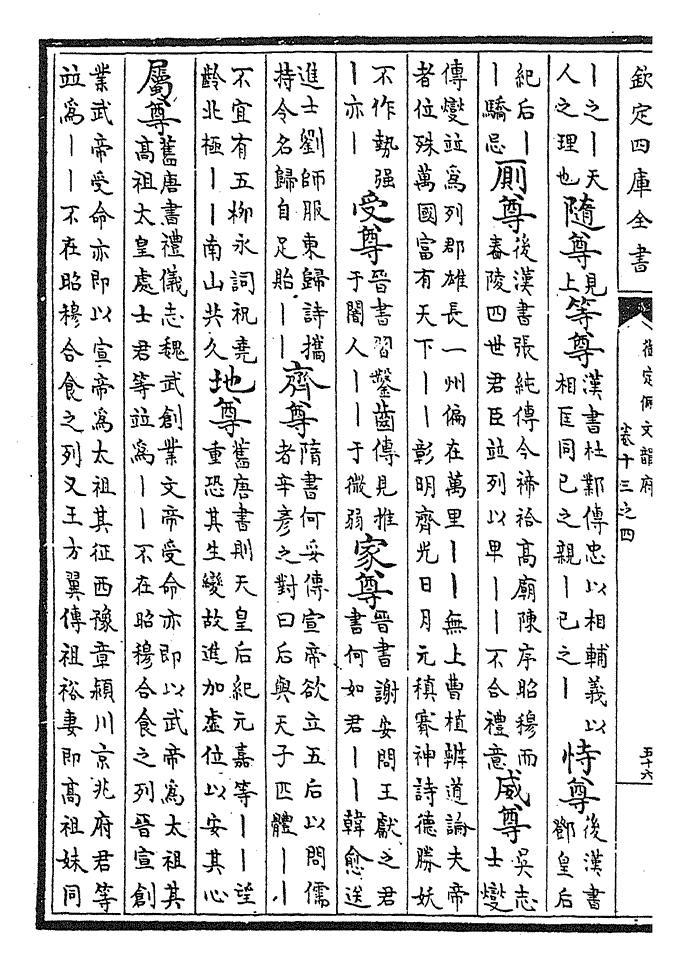 欽定四庫全書
御定佩文韻府
卷十三之四
五十六
｜之｜天人之理也隨尊見上等尊漢書杜鄴傳忠以相輔義以相匡同已之親｜已之｜恃尊後漢書鄧皇后
紀后｜｜驕忌厠尊後漢書張純傳今禘祫高廟陳序昭穆而舂陵四世君臣並列以卑｜｜不合禮意威尊吳志士燮
傳燮並為列郡雄長一州偏在萬里｜｜無上曹植辨道論夫帝者位殊萬國富有天下｜｜彰明齊光日月元稹賽神詩德勝妖
不作勢强｜亦｜受尊晉書習鑿齒傳見推于闇人｜｜于微弱家尊晉書謝安問王獻之君書何如君｜｜韓愈送
進士劉師服東歸詩攜持令名歸自足貽｜｜齊尊隋書何妥傳宣帝欲立五后以問儒者辛彥之對曰后與天子匹體｜｜
不宜有五柳永詞祝堯齡北極｜｜南山共久地尊舊唐書則天皇后紀元嘉等｜｜望重恐其生變故進加虛位以安其心
屬尊舊唐書禮儀志魏武創業文帝受命亦即以武帝為太祖其高祖太皇處士君等並為｜｜不在昭穆合食之列晉宣創
業武帝受命亦即以宣帝為太祖其征西豫章潁川京兆府君等並為｜｜不在昭穆合食之列又王方翼傳祖裕妻即高祖妹同